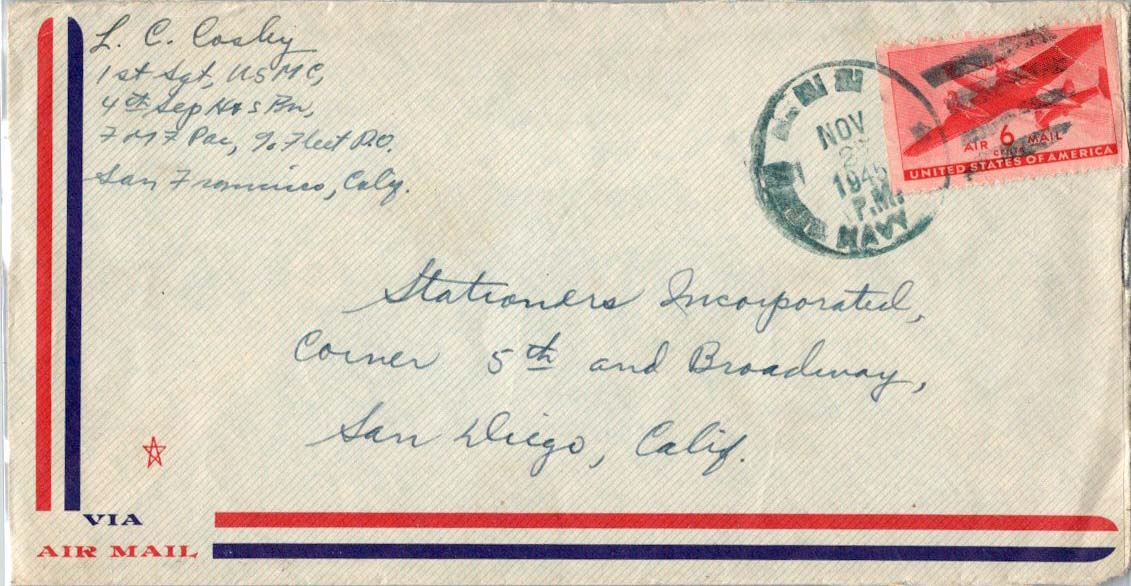 L. C. Cosby
1st Sgt, USMC,
4th Sep H&S Bn,
FMF Pac, % Fleet P.O.
San Francisco, Caly.
NOV
1945
P.M.
NAVY
AIR 6 MAIL
CENTS
UNITED STATES OF AMERICA
Stationers Incorporated,
Corner 5th and Broadway,
San Diego, Calif.
VIA
AIR MAIL